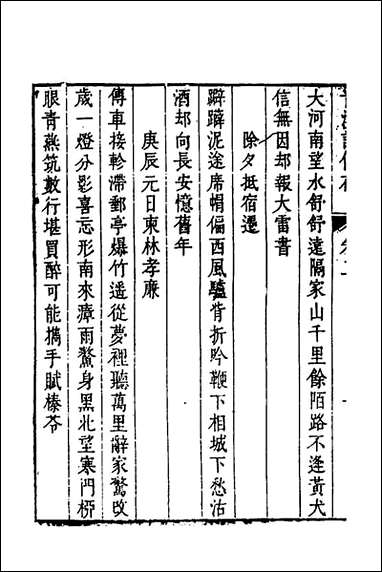 大河南望水舒舒遠隔家山千里餘陌路不逢黃犬
信無因却報大雷書
除夕抵宿遷
躃躋泥途席帽偏西風驢背折吟鞭下相城下愁沽
酒却向長安憶舊年
庚辰元日柬林孝廉
傳車接軫滯郵亭爆竹遥從夢裡聽萬里辭家驚改
歲一燈分影喜忘形南來瘴雨鰲身黑北望寒門
眼青燕筑數行堪買醉可能攜手賦榛苓